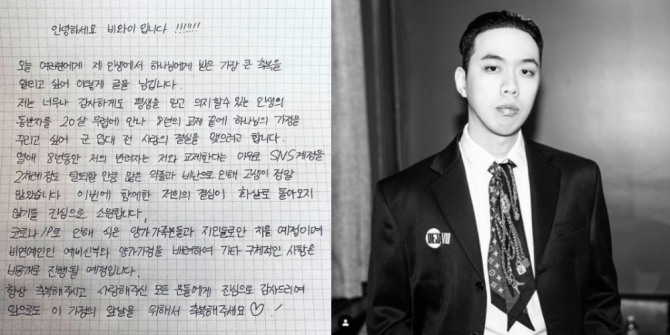 안녕하세요 비와이 입니다 !!!!!!!
오늘 여러분에게 제 인생에서 하나님에게 받은 가장 큰 축복을
알리고 싶어 이렇게 글을 남깁니다.
저는 너무나 감사하게도 평생을 믿고 의지할수 있는 인생의
동반자를 20살 무렵에 만나 8년의 교제 끝에 하나님의 가정을
꾸리고 싶어 군 입대 전 사랑의 결실을 맺으려고 합니다.
연애 8년동안 저의 반려자는 저와 교제한다는 이유로 SNS계정을
2차례정도 탈퇴할 만큼 많은 악플과 비난으로 인해 고생이 정말
많았습니다 이번에 함께한 저희의 결심이 화살로 돌아오지
않기를 진심으로 소원합니다.
코로나19로 인해 식은 양가가족분들과 지인분들만 차를 예정이며
비연예인인 예비신부와 양가가정을 배려하여 기타 구체적인 사항은
비공개로 진행될 예정입니다.
항상 축복해주시고 사랑해주신 모든 분들에게 진심으로 감사드리며
앞으로도 이 가정의 앞날을 위해서 축복해주세요♡!
DEJAVU